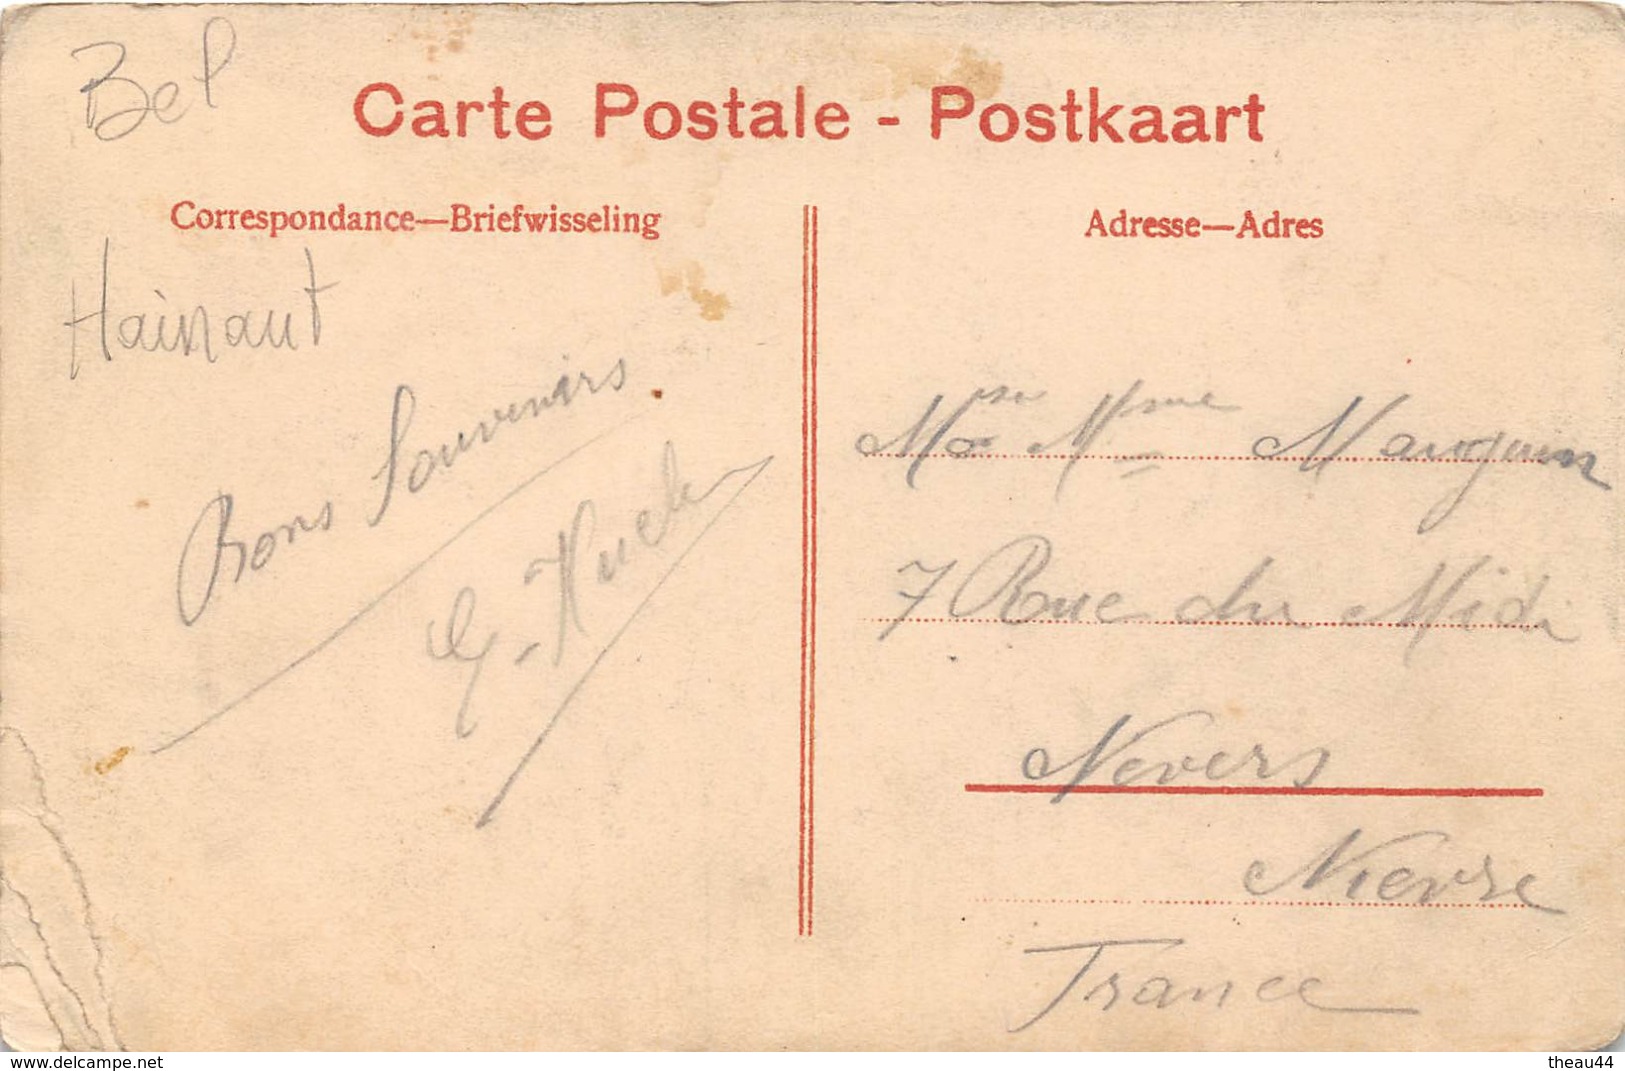 Bel
Carte Postale - Postkaart
Correspondance—Briefwisseling
Adresse—Adres
Hainaut
Bons Souvenirs
G. Huch
Mme Mauguin
7 Rue du Midi
Nevers
Nievre
France
www.delcampe.net
theau44